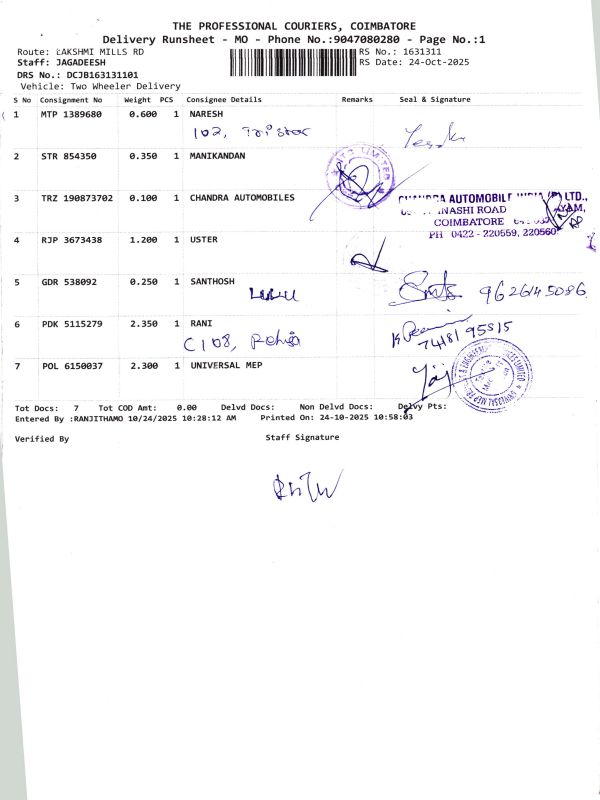 THE PROFESSIONAL COURIERS, COIMBATORE
Delivery Runsheet - MO - Phone No.:9047080280 - Page No.:1
Route: LAKSHMI MILLS RD RS No.: 1631311
Staff: JAGADEESH RS Date: 24-Oct-2025
DRS No.: DCJB163131101
Vehicle: Two Wheeler Delivery
S No Consignment No Weight PCS Consignee Details Remarks Seal & Signature
1 MTP 1389680 0.600 1 NARESH
102, Tristar
2 STR 854350 0.350 1 MANIKANDAN
LIMITED
3 TRZ 190873702 0.100 1 CHANDRA AUTOMOBILES
CHANDRA AUTOMOBILE INDIA (P) LTD.,
INASHI ROAD
COIMBATORE
PH 0422 - 220559, 220560
4 RJP 3673438 1.200 1 USTER
5 GDR 538092 0.250 1 SANTHOSH
9626145086
6 PDK 5115279 2.350 1 RANI
C108, 74181 95815
7 POL 6150037 2.300 1 UNIVERSAL MEP
UNIVERSAL MEP
Tot Docs: 7 Tot COD Amt: 0.00 Delvd Docs: Non Delvd Docs: Delvy Pts:
Entered By :RANJITHAMO 10/24/2025 10:28:12 AM Printed On: 24-10-2025 10:58:03
Verified By Staff Signature